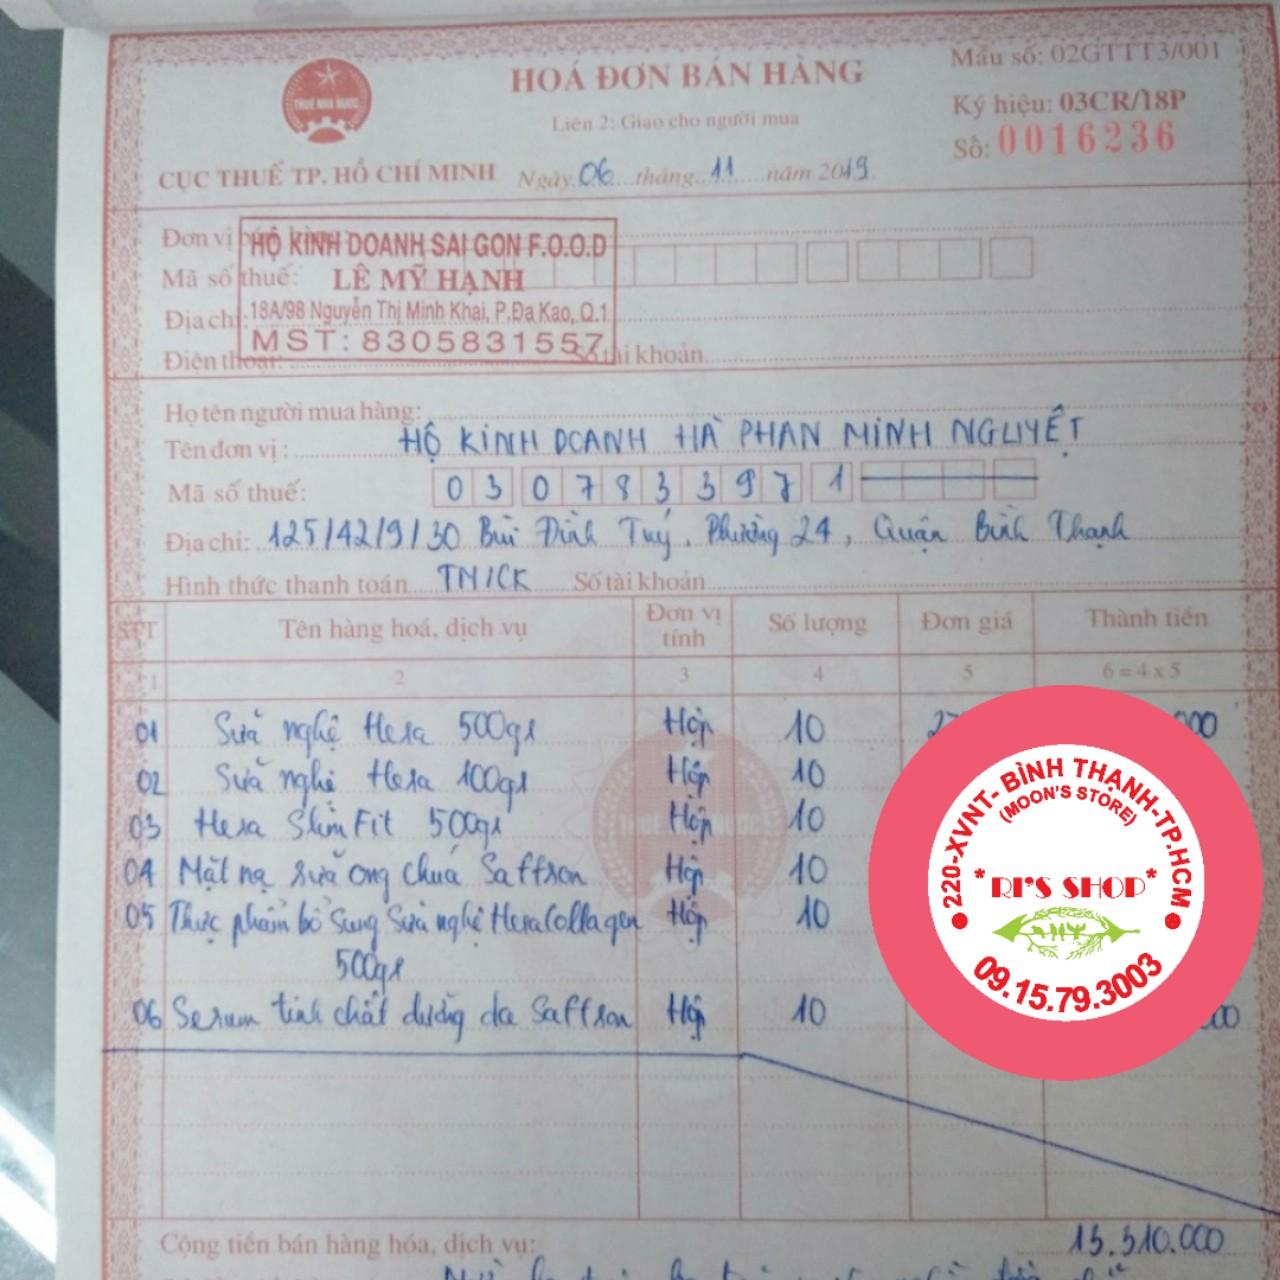 HOÁ ĐƠN BÁN HÀNG
Mẫu số: 02GTTT3/001
Liên 2: Giao cho người mua
Ký hiệu: 03CR/18P
Số: 0016236
THUẾ NHÀ NƯỚC
CỤC THUẾ TP. HỒ CHÍ MINH
Ngày 06 tháng 11 năm 2019
Đơn vị
HỘ KINH DOANH SAI GON F.O.O.D
Mã số thuế:
LÊ MỸ HẠNH
Địa chỉ:
18A/98 Nguyễn Thị Minh Khai, P.Đa Kao, Q.1
MST: 8305831557
Điện thoại: tài khoản
Họ tên người mua hàng:
Tên đơn vị: HỘ KINH DOANH HÀ PHAN MINH NGUYỆT
Mã số thuế: 0307833971
Địa chỉ: 125/42/9/30 Bùi Đình Tuý, Phường 24, Quận Bình Thạnh
Hình thức thanh toán TM/CK Số tài khoản
STT Tên hàng hoá, dịch vụ Đơn vị tính Số lượng Đơn giá Thành tiền
1 2 3 4 5 6 = 4 x 5
01 Sữa nghệ Hera 500gr Hộp 10 27 000
02 Sữa nghệ Hera 100gr Hộp 10
03 Hera Slim Fit 500gr Hộp 10
04 Mặt nạ sữa ong chúa Saffron Hộp 10
05 Thực phẩm bổ sung Sữa nghệ Hera Collagen Hộp 10
500gr
06 Serum tinh chất dưỡng da Saffron Hộp 10 00
220-XVNT- BÌNH THẠNH-TP.HCM
(MOON'S STORE)
*RI'S SHOP*
09.15.79.3003
Cộng tiền bán hàng hóa, dịch vụ: 13.310.000